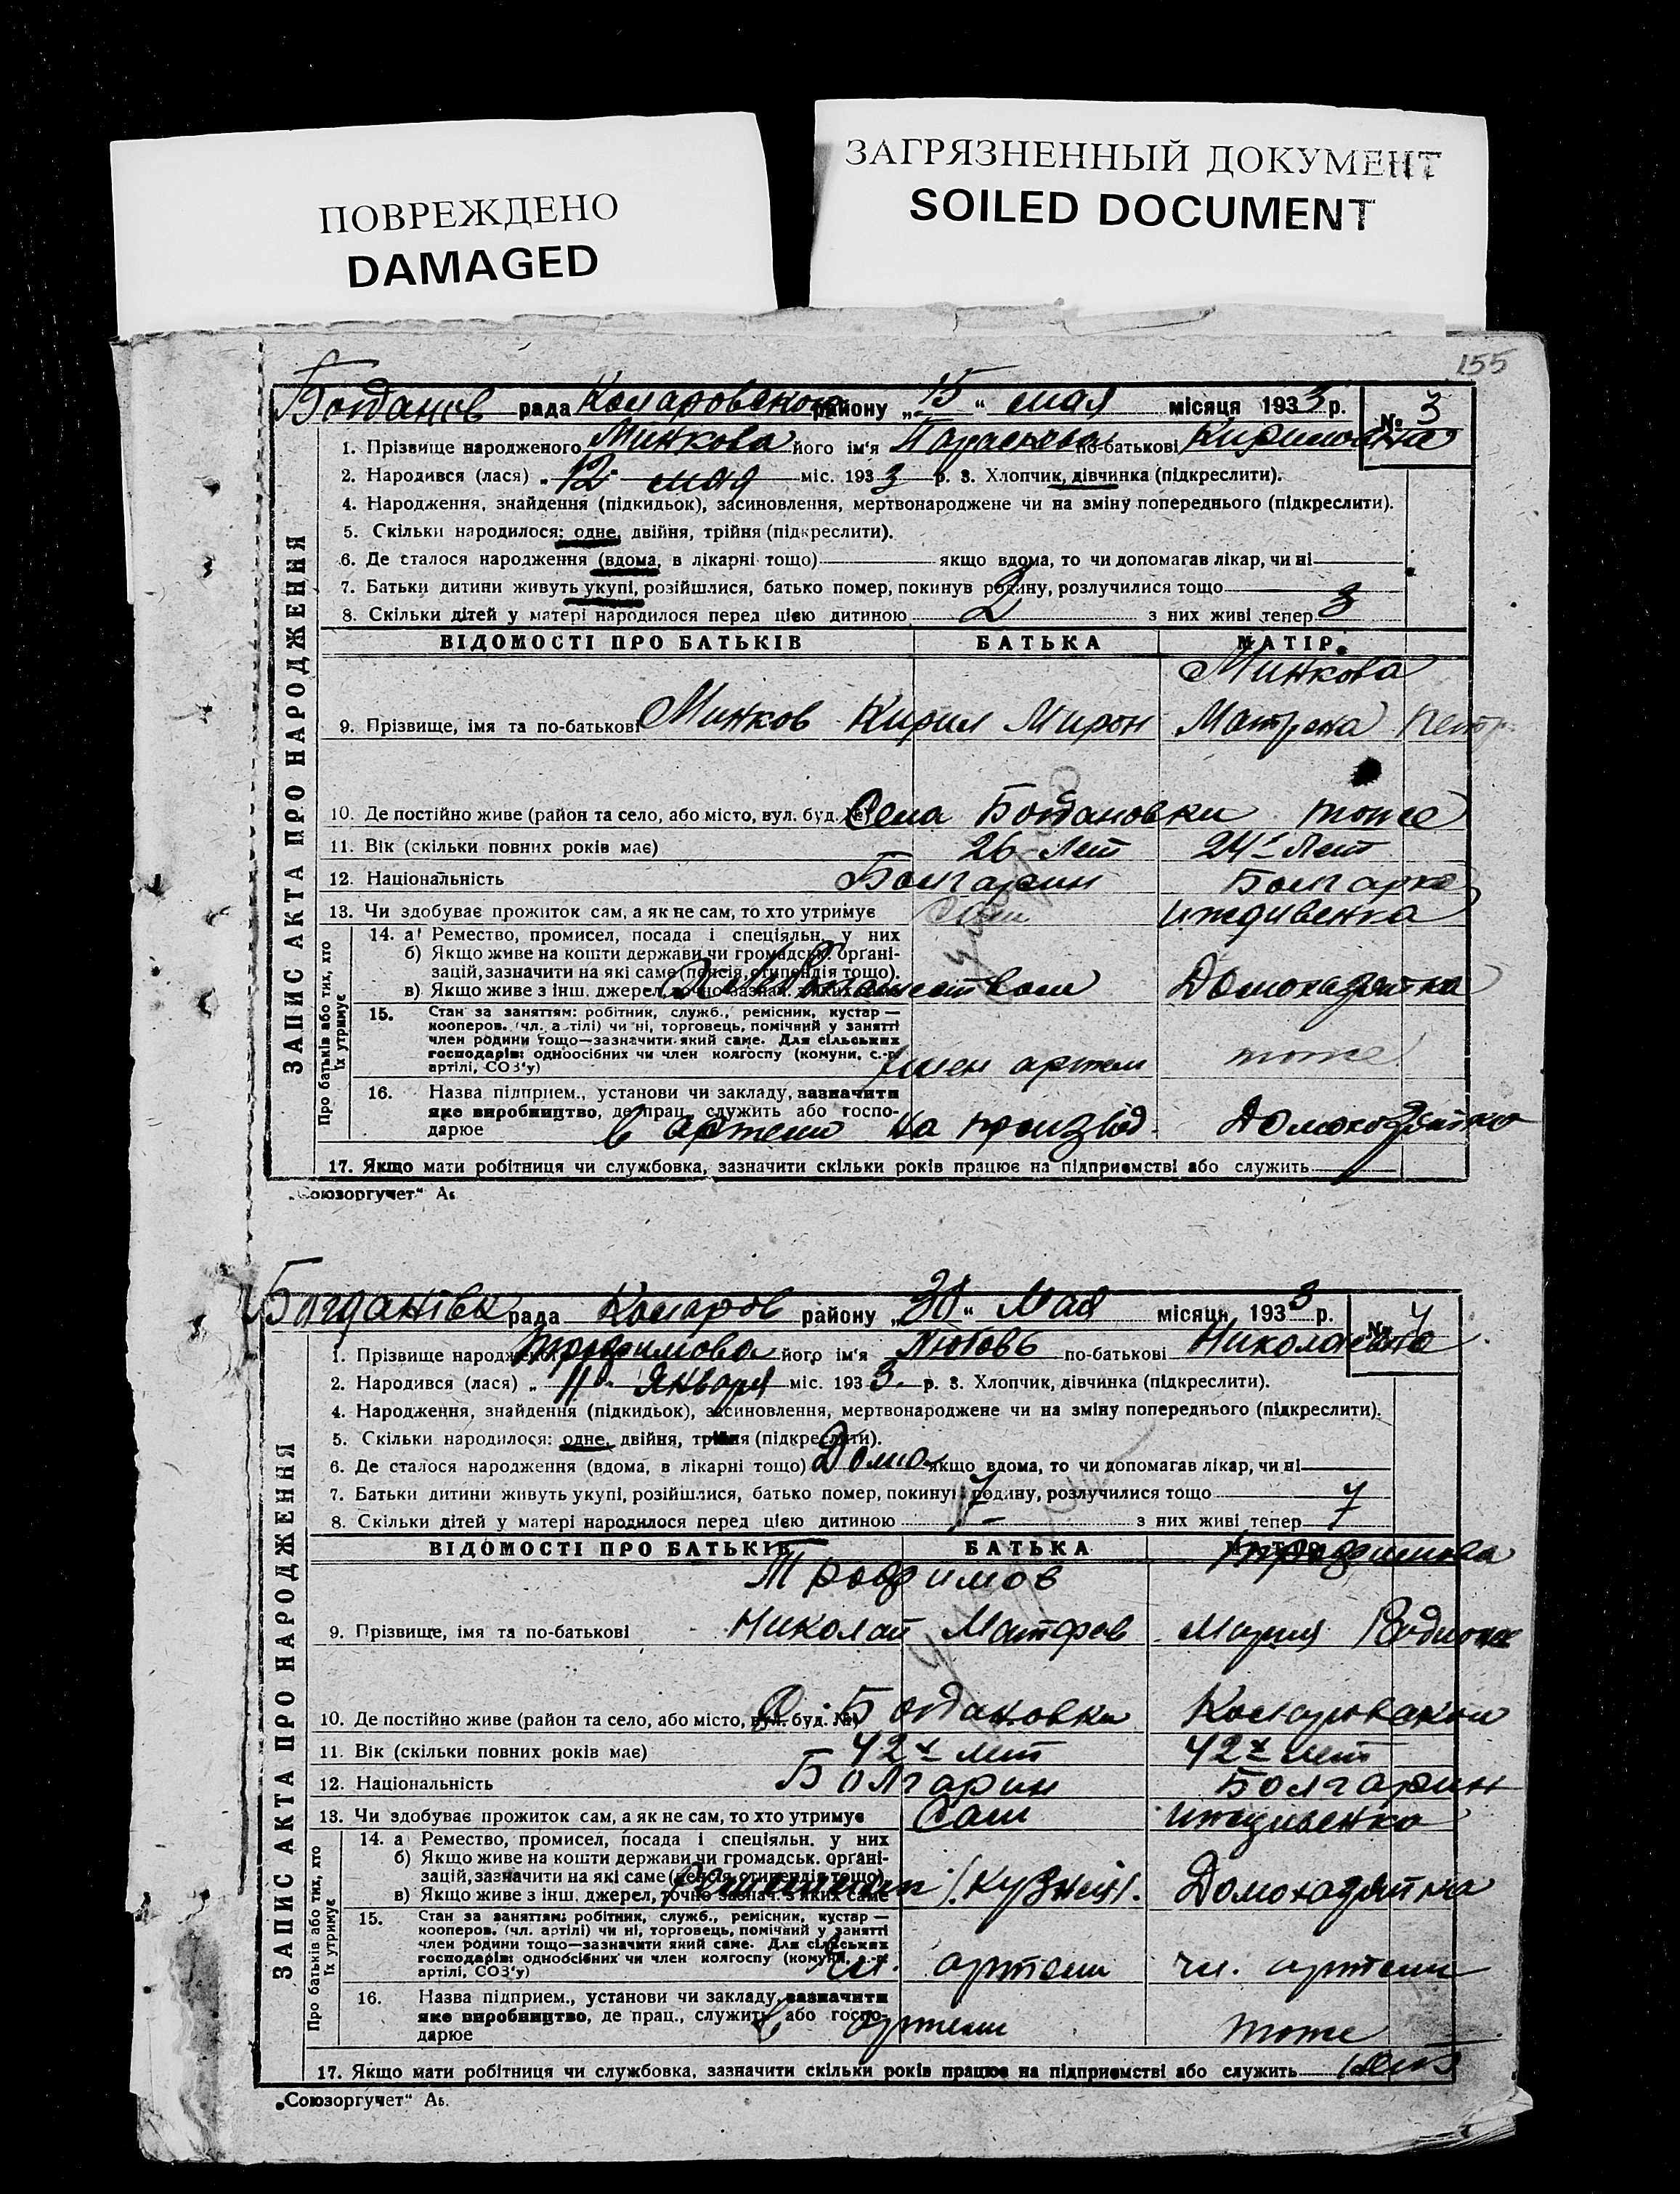 ПОВРЕЖДЕНО
DAMAGED
ЗАГРЯЗНЕННЫЙ ДОКУМЕНТ
SOILED DOCUMENT
155
Богданов рада Комаровского району „15“ мая місяця 1933 р. № 3
ЗАПИС АКТА ПРО НАРОДЖЕННЯ
1. Прізвище народженого Минкова його ім'я по-батькові Кириловна
2. Народився (лася) „12 мая міс. 1933 р. 3. Хлопчик, дівчинка (підкреслити).
4. Народження, знайдення (підкидьок), засиновлення, мертвонароджене чи на зміну попереднього (підкреслити).
5. Скільки народилося: одне, двійня, трійня (підкреслити).
6. Де сталося народження (вдома, в лікарні тощо) якщо вдома, то чи допомагав лікар, чи ні
7. Батьки дитини живуть укупі, розійшлися, батько помер, покинув родину, розлучилися тощо
8. Скільки дітей у матері народилося перед цією дитиною 2 з них живі тепер 3
ВІДОМОСТІ ПРО БАТЬКІВ БАТЬКА МАТІР
Минкова
9. Прізвище, імя та по-батькові Минков Кирил Мирон Матрена Петр
10. Де постійно живе (район та село, або місто, вул. буд. №) Села Богдановки тоже
11. Вік (скільки повних років має) 26 лет 24 лет
12. Національність Болгарин Болгарка
13. Чи здобуває прожиток сам, а як не сам, то хто утримує Сам иждивенка
Про батьків або тих, хто їх утримує
14. а) Ремество, промисел, посада і спеціяльн. у них
б) Якщо живе на кошти держави чи громадськ. органі-
зацій, зазначити на які саме (пенсія, стипендія тощо).
в) Якщо живе з інш. джерел, точно зазнач. з яких саме Домохазяйтка
15. Стан за заняттям: робітник, служб., ремісник, кустар —
кооперов. (чл. артілі) чи ні, торговець, помічний у занятті
член родини тощо—зазначити який саме. Для сільських
господарів: одноосібних чи член колгоспу (комуни, с.-г.
артілі, СОЗ'у) член артели тоже
16. Назва підприєм., установи чи закладу, зазначити
яке виробництво, де прац., служить або госпо-
дарює в артели на производ. Домохозяйтка
17. Якщо мати робітниця чи службовка, зазначити скільки років працює на підприємстві або служить
„Союзоргучет“ Аб.
Богданівка рада Комаров району „30“ Мая місяця 1933 р. № 4
ЗАПИС АКТА ПРО НАРОДЖЕННЯ
1. Прізвище народженого Трофимова його ім'я Любовь по-батькові Николаевна
2. Народився (лася) „11“ Января міс. 1933 р. 3. Хлопчик, дівчинка (підкреслити).
4. Народження, знайдення (підкидьок), засиновлення, мертвонароджене чи на зміну попереднього (підкреслити).
5. Скільки народилося: одне, двійня, трійня (підкреслити).
6. Де сталося народження (вдома, в лікарні тощо) Дома якщо вдома, то чи допомагав лікар, чи ні
7. Батьки дитини живуть укупі, розійшлися, батько помер, покинув родину, розлучилися тощо
8. Скільки дітей у матері народилося перед цією дитиною 7 з них живі тепер 7
ВІДОМОСТІ ПРО БАТЬКІВ БАТЬКА МАТІР
Трофимов Трофимова
9. Прізвище, імя та по-батькові Николай Матфев Мария Родионов
10. Де постійно живе (район та село, або місто, вул. буд. №) С. Богдановки
11. Вік (скільки повних років має) 42х лет 42х лет
12. Національність Болгарин Болгарин
13. Чи здобуває прожиток сам, а як не сам, то хто утримує Сам иждивенка
Про батьків або тих, хто їх утримує
14. а) Ремество, промисел, посада і спеціяльн. у них
б) Якщо живе на кошти держави чи громадськ. органі-
зацій, зазначити на які саме (пенсія, стипендія тощо).
в) Якщо живе з інш. джерел, точно зазнач. з яких саме Домохазяйтка
15. Стан за заняттям: робітник, служб., ремісник, кустар —
кооперов. (чл. артілі) чи ні, торговець, помічний у занятті
член родини тощо—зазначити який саме. Для сільських
господарів: одноосібних чи член колгоспу (комуни, с.-г.
артілі, СОЗ'у) чл. артели чл. артели
16. Назва підприєм., установи чи закладу, зазначити
яке виробництво, де прац., служить або госпо-
дарює в артели тоже
17. Якщо мати робітниця чи службовка, зазначити скільки років працює на підприємстві або служить
„Союзоргучет“ Аб.